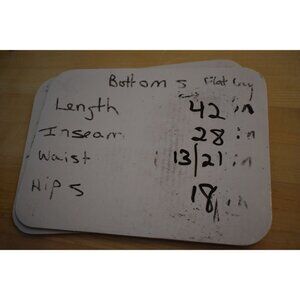 Bottoms
Length 42 in
Inseam 28 in
Waist 13/21 in
Hips 18 in